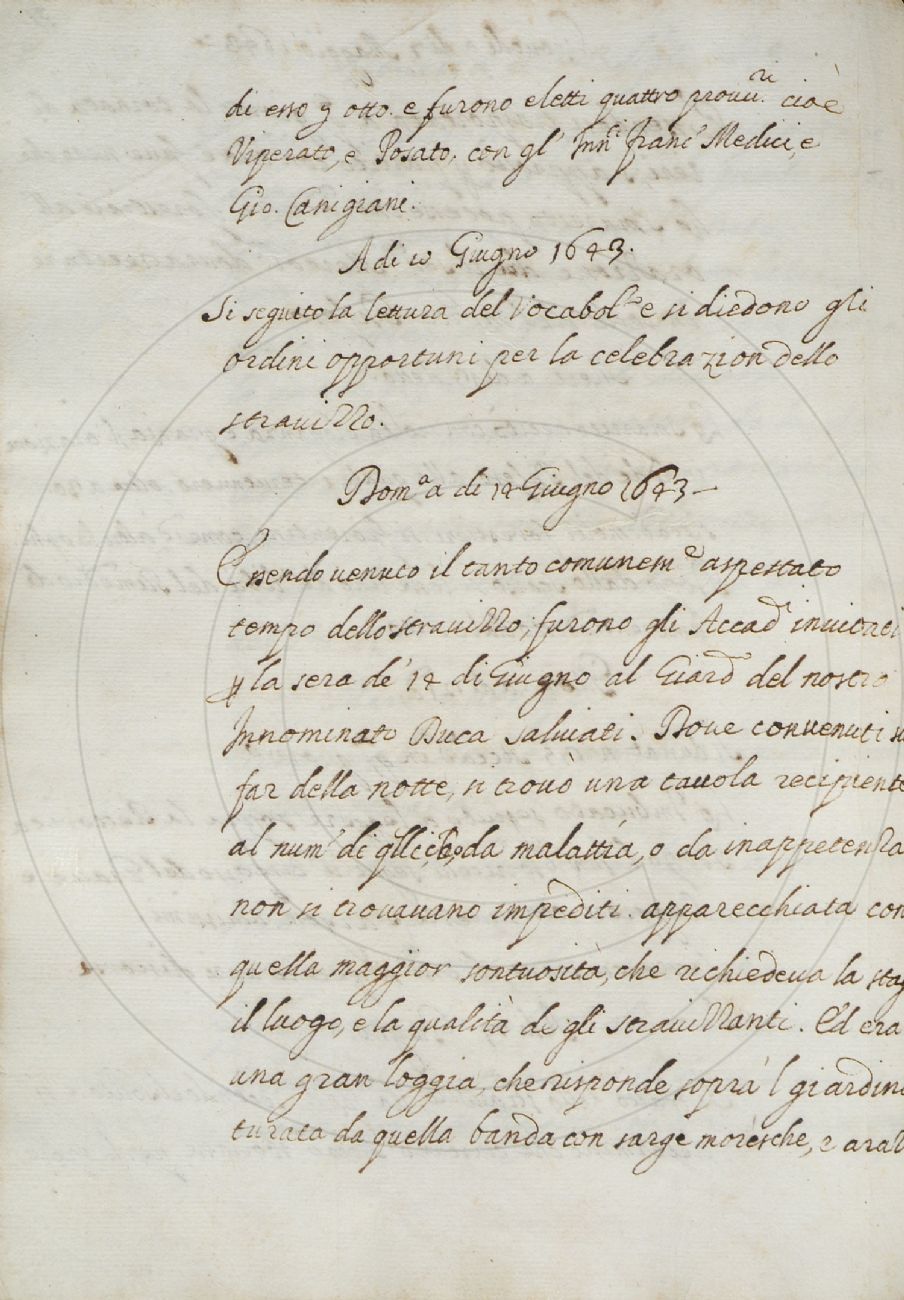 di esso p otto. e furono eletti quattro provri. cioè
Viperato, e Posato, con gl' Innti. Franc' Medici, e
Gio. Canigiani.
A di 10 Giugno 1643.
Si seguitò la lettura del Vocabolro e si diedono gli
ordini opportuni per la celebrazion dello
stravizzo.
Doma a di 14 Giugno 1643 –
Essendo venuto il tanto comuneme aspettato
tempo dello stravizzo, furono gli Accad invitati
p la sera de' 14 di Giugno al Giard del nostro
Innominato Duca Salviati. Dove convenuti su
far della notte, si trovò una tavola recipiente
al num' di qlli, da malattia, o da inappetenza
non si trovavano impediti. apparecchiata con
quella maggior sontuosità, che richiedeva la stag
il luogo, e la qualità de gli stravizzanti. Ed era
una gran loggia, che risponde sopra 'l giardino
turata da quella banda con sarge moresche, e araz